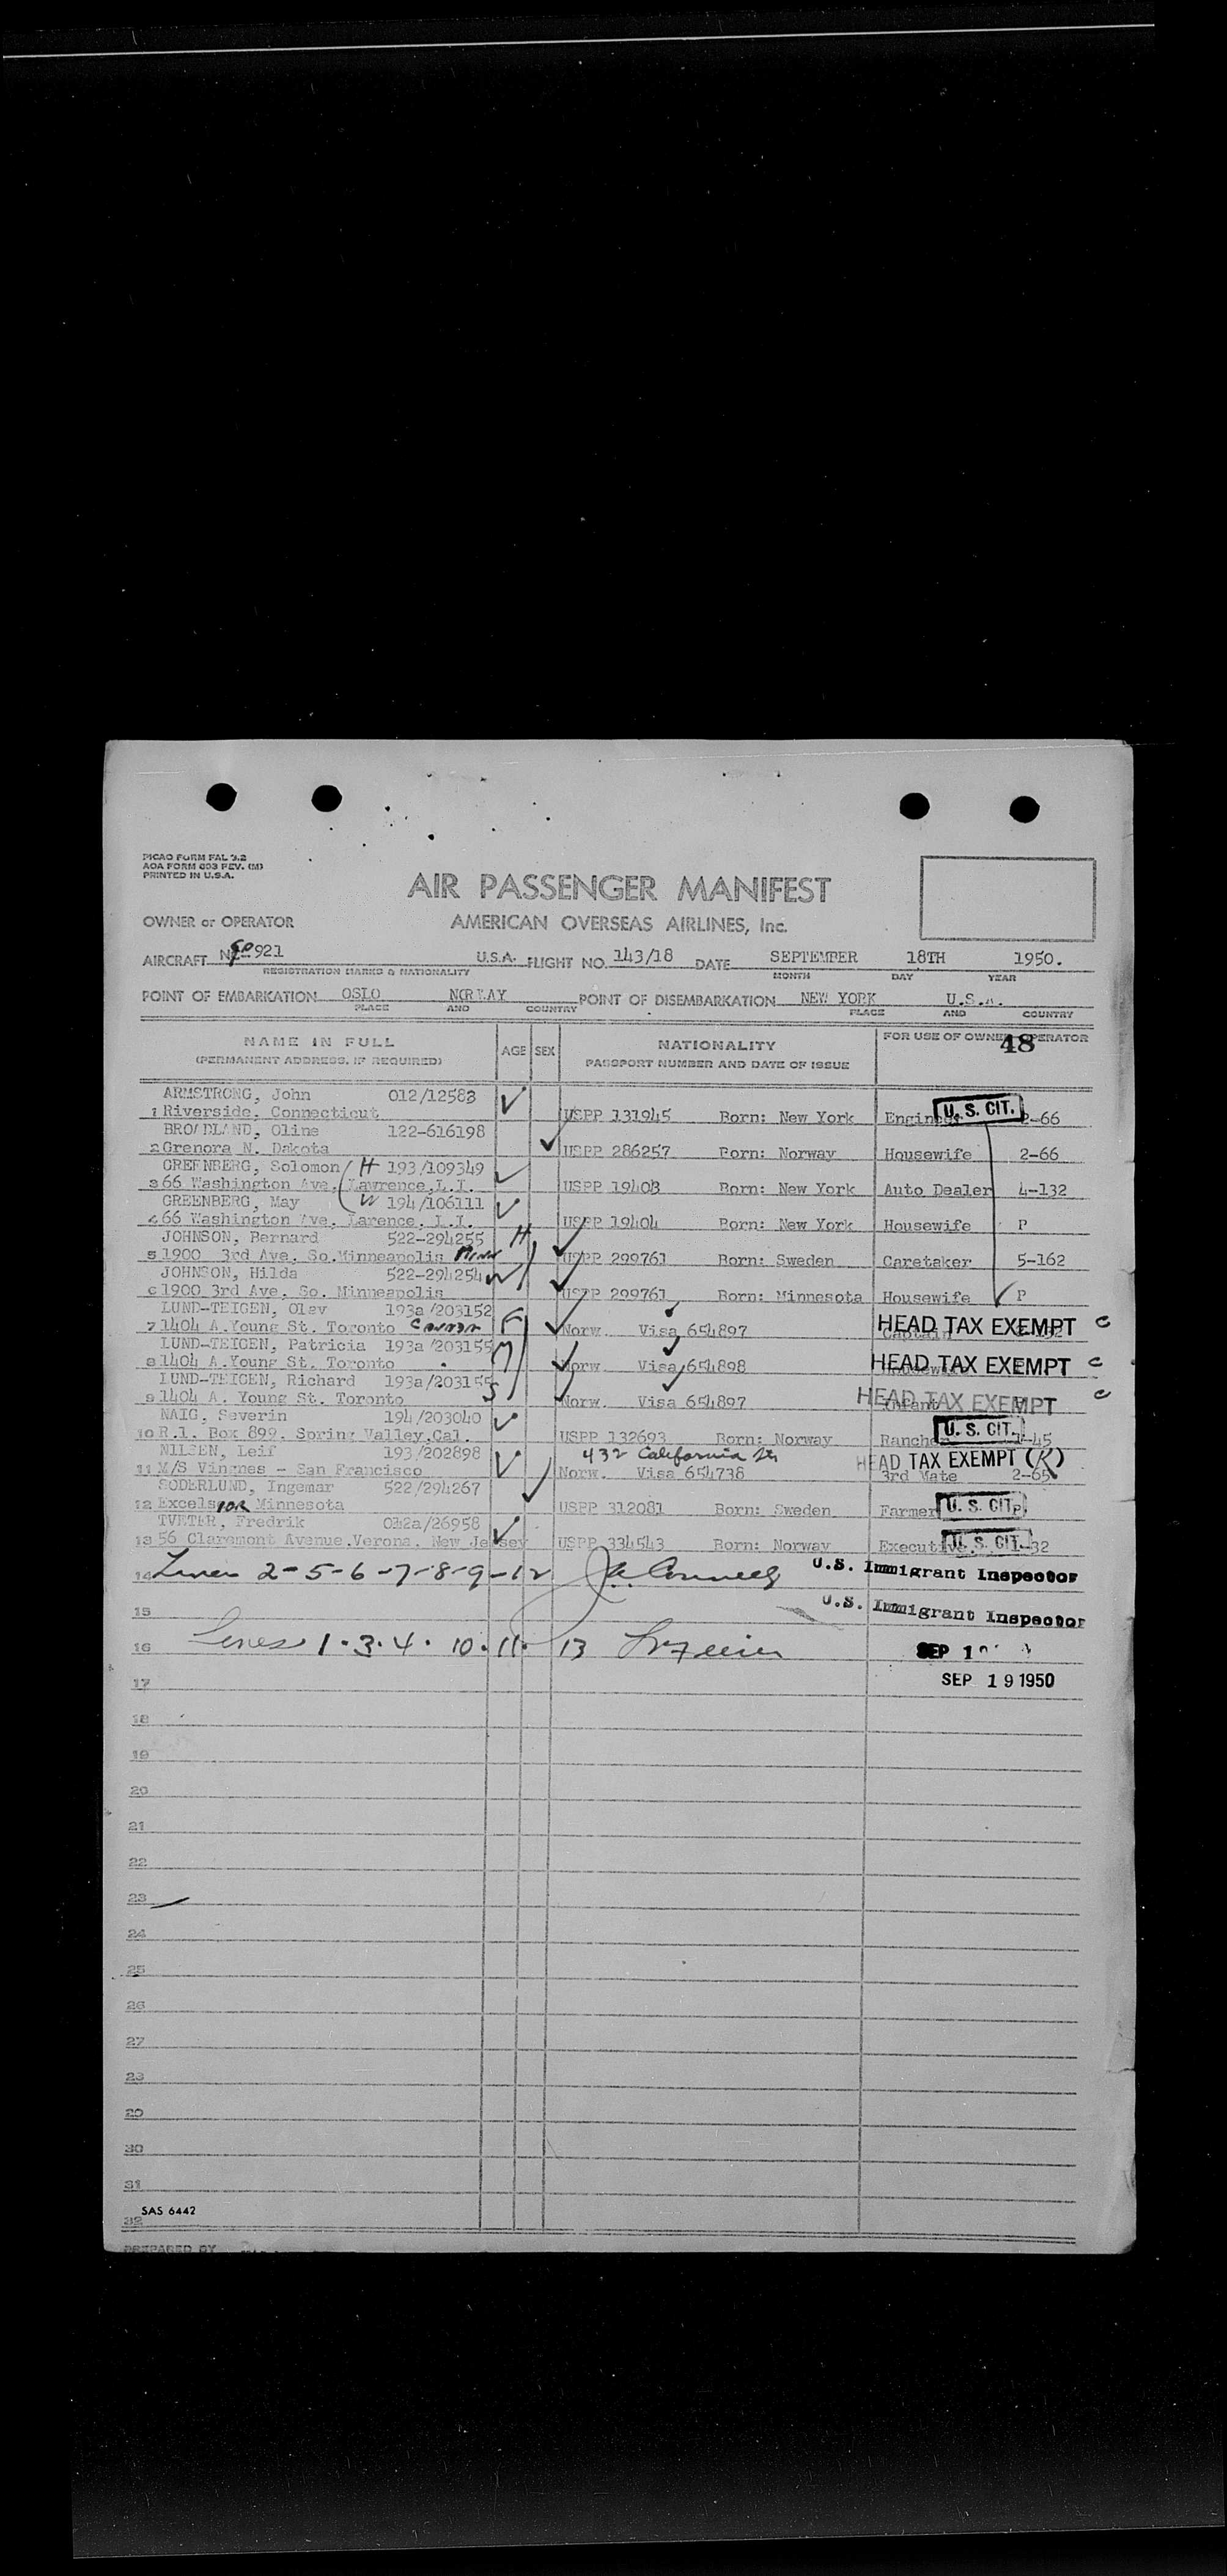 PICAO FORM FAL 3.2
AOA FORM 603 REV. (M)
PRINTED IN U.S.A.
AIR PASSENGER MANIFEST
OWNER or OPERATOR AMERICAN OVERSEAS AIRLINES, Inc.
AIRCRAFT 90921 U.S.A. FLIGHT NO. 143/18 DATE SEPTEMBER 18TH 1950.
REGISTRATION MARKS & NATIONALITY MONTH DAY YEAR
POINT OF EMBARKATION OSLO NORWAY POINT OF DISEMBARKATION NEW YORK U.S.A.
PLACE AND COUNTRY PLACE AND COUNTRY
NAME IN FULL AGE SEX NATIONALITY FOR USE OF OWNER OPERATOR
48
(PERMANENT ADDRESS, IF REQUIRED) PASSPORT NUMBER AND DATE OF ISSUE
ARMSTRONG, John 012/12583
1 Riverside, Connecticut USPP 131945 Born: New York Engineer U. S. CIT. 2-66
BROADLAND, Oline 122-616198
2 Grenora N. Dakota USPP 286257 Born: Norway Housewife 2-66
GREENBERG, Solomon H 193/109349
3 66 Washington Ave, Lawrence, L.I. USPP 19403 Born: New York Auto Dealer 4-132
GREENBERG, May W 194/106111
4 66 Washington Ave, Larence, L.I. USPP 19404 Born: New York Housewife P
JOHNSON, Bernard 522-294255 H
5 1900 3rd Ave, So.Minneapolis Minn USPP 299761 Born: Sweden Caretaker 5-162
JOHNSON, Hilda 522-294254
6 1900 3rd Ave, So. Minneapolis USPP 299761 Born: Minnesota Housewife P
LUND-TEIGEN, Olav 193a/203152 F
7 1404 A.Young St. Toronto Canada Norw. Visa 654897 Captain HEAD TAX EXEMPT C
LUND-TEIGEN, Patricia 193a/203155 M
8 1404 A.Young St. Toronto Norw. Visa 654898 Housewife HEAD TAX EXEMPT C
LUND-TEIGEN, Richard 193a/203155 S
9 1404 A. Young St. Toronto Norw. Visa 654897 Infant HEAD TAX EXEMPT C
NAIG, Severin 194/203040
10 R.1. Box 899, Spring Valley,Cal. USPP 132693 Born: Norway Rancher U. S. CIT. -45
NILSEN, Leif 193/202898 432 California St. HEAD TAX EXEMPT (R)
11 M/S Vingnes - San Francisco Norw. Visa 654738 3rd Mate 2-65
SODERLUND, Ingemar 522/294267
12 Excelsior Minnesota USPP 312081 Born: Sweden Farmer U. S. CIT. P
TVETER, Fredrik 042a/26958
13 56 Claremont Avenue,Verona, New Jersey USPP 334543 Born: Norway Executive U. S. CIT. -32
14 Lines 2-5-6-7-8-9-12 U.S. Immigrant Inspector
15 U.S. Immigrant Inspector
16 Lines 1.3.4. 10.11. 13 SEP 1
17 SEP 19 1950
18
19
20
21
22
23
24
25
26
27
28
29
30
31
SAS 6442
32
PREPARED BY